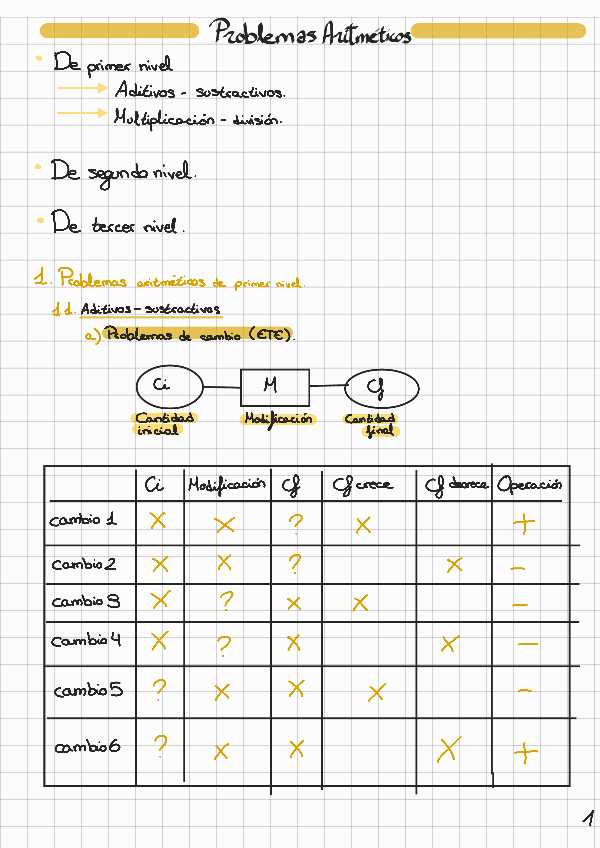 Problemas Aritméticos
De primer nivel
Aditivos - sustractivos.
Multiplicación - división.
De segundo nivel.
De tercer nivel.
1. Problemas aritméticos de primer nivel.
1.1. Aditivos - sustractivos
a) Problemas de cambio (ETE).
Ci M Cf
Cantidad inicial Modificación Cantidad final
Ci Modificación Cf Cf crece Cf decrece Operación
cambio 1 X X ? X +
cambio 2 X X ? X -
cambio 3 X ? X X -
cambio 4 X ? X X -
cambio 5 ? X X X -
cambio 6 ? X X X +
1